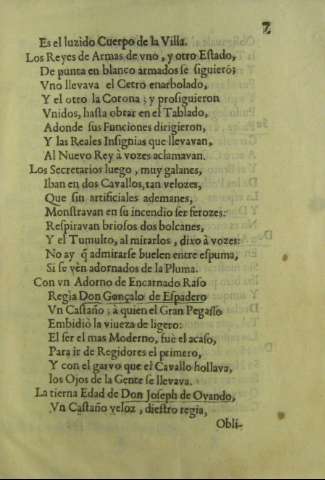 7
Es el luzido Cuerpo de la Villa.
Los Reyes de Armas de vno, y otro Estado,
De punta en blanco armados se siguierõ;
Vno llevava el Cetro enarbolado,
Y el otro la Corona; y prosiguieron
Vnidos, hasta obrar en el Tablado,
Adonde sus Funciones dirigieron,
Y las Reales Insignias que llevavan,
Al Nuevo Rey à vozes aclamavan.
Los Secretarios luego, muy galanes,
Iban en dos Cavallos, tan velozes,
Que sin artificiales ademanes,
Monstravan en su incendio ser ferozes:
Respiravan briosos dos bolcanes,
Y el Tumulto, al mirarlos, dixo à vozes:
No ay q̃ admirarse buelen entre espuma,
Si se vèn adornados de la Pluma.
Con vn Adorno de Encarnado Raso
Regia Don Gonçalo de Espadero
Vn Castaño; à quien el Gran Pegasso
Embidiò la viueza de ligero:
El ser el mas Moderno, fue el acaso,
Para ir de Regidores el primero,
Y con el garvo que el Cavallo hollava,
los Ojos de la Gente se llevava.
La tierna Edad de Don Joseph de Ovando,
Vn Castaño veloz, diestro regia,
Obli-